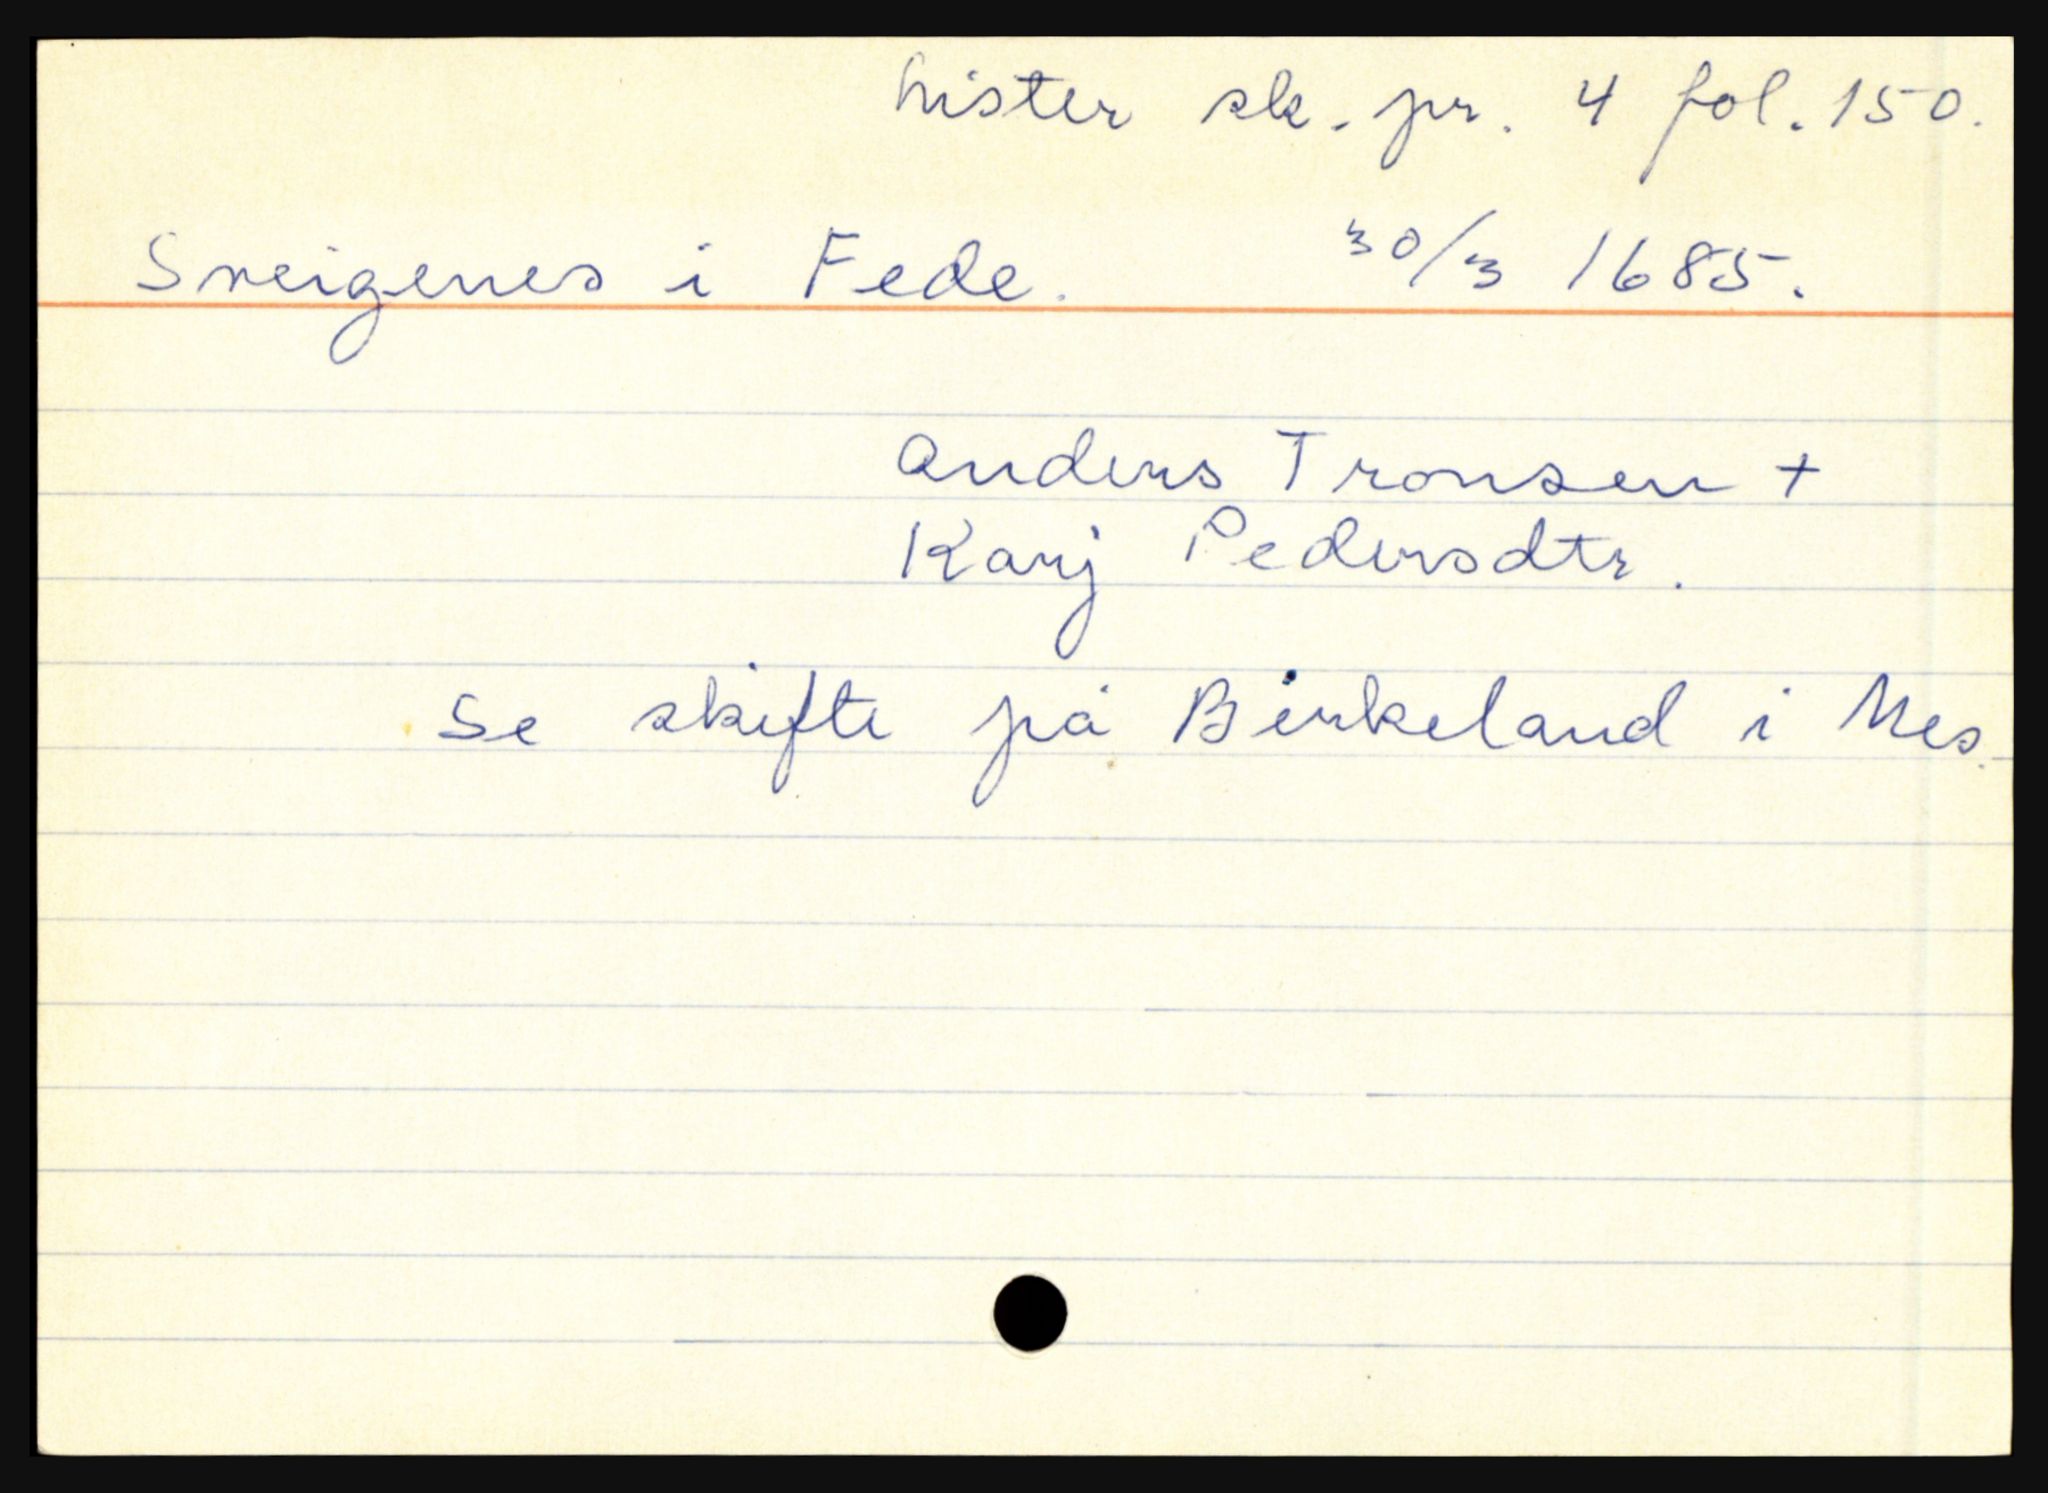 Lister sk. pr. 4 fol. 150.
Sveigenes i Fede. 30/3 1685.
Anders Tronsen +
Karj Pedersdtr.
Se skifte på Birkeland i Nes.